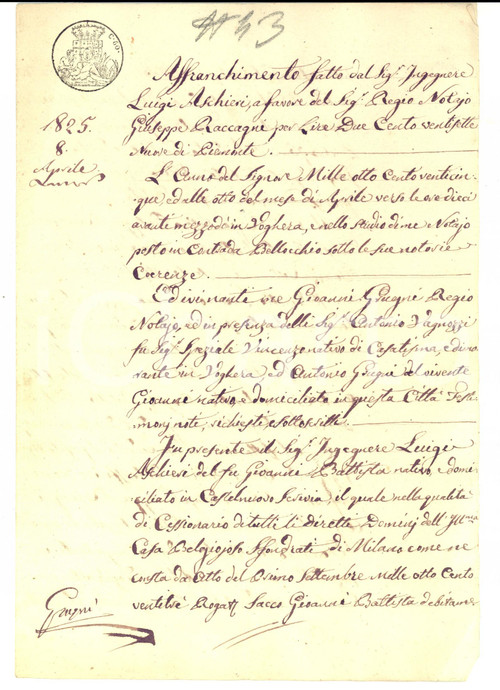 #53
C. 60.
1825.
8.
Aprile
Affranchimento fatto dal Sig.r Ingegnere
Luigi Aschieri, a favore del Sig.r Regio Notajo
Giuseppe Raccagni per Lire Due Cento ventisette
Nuove di Piemonte
L'Anno del Signore Mille otto Cento venticin=
que ed alle otto del mese di Aprile verso le ore dieci
avanti mezzodì in Voghera, e nello studio di me Notajo
posto in Contrada Bellocchio sotto le sue notorie
Coerenze
Ed avanti me Gioanni Grugni Regio
Notajo, ed in presenza delli Sig.ri Antonio
fu Sig.r Speziale Vincenzo nativo di Casatisma, e dimo
rante in Voghera, ed Antonio Grugni del vivente
Gioanni nativo e domiciliato in questa Città Testi
monj noti, richiesti e sottoscritti
In presente il Sig.r Ingegnere Luigi
Aschieri del fu Gioanni Battista nativo, e domi
ciliato in Castelnuovo Scrivia, il quale nella qualità
di Cessionario di tutti li diretti Dominj dell'Ill.ma
Casa Belgiojoso Sfondrati di Milano come ne
consta da Atto del Primo Settembre Mille otto Cento
ventitrè Rogato Sacco Gioanni Battista debitamen
Grugni